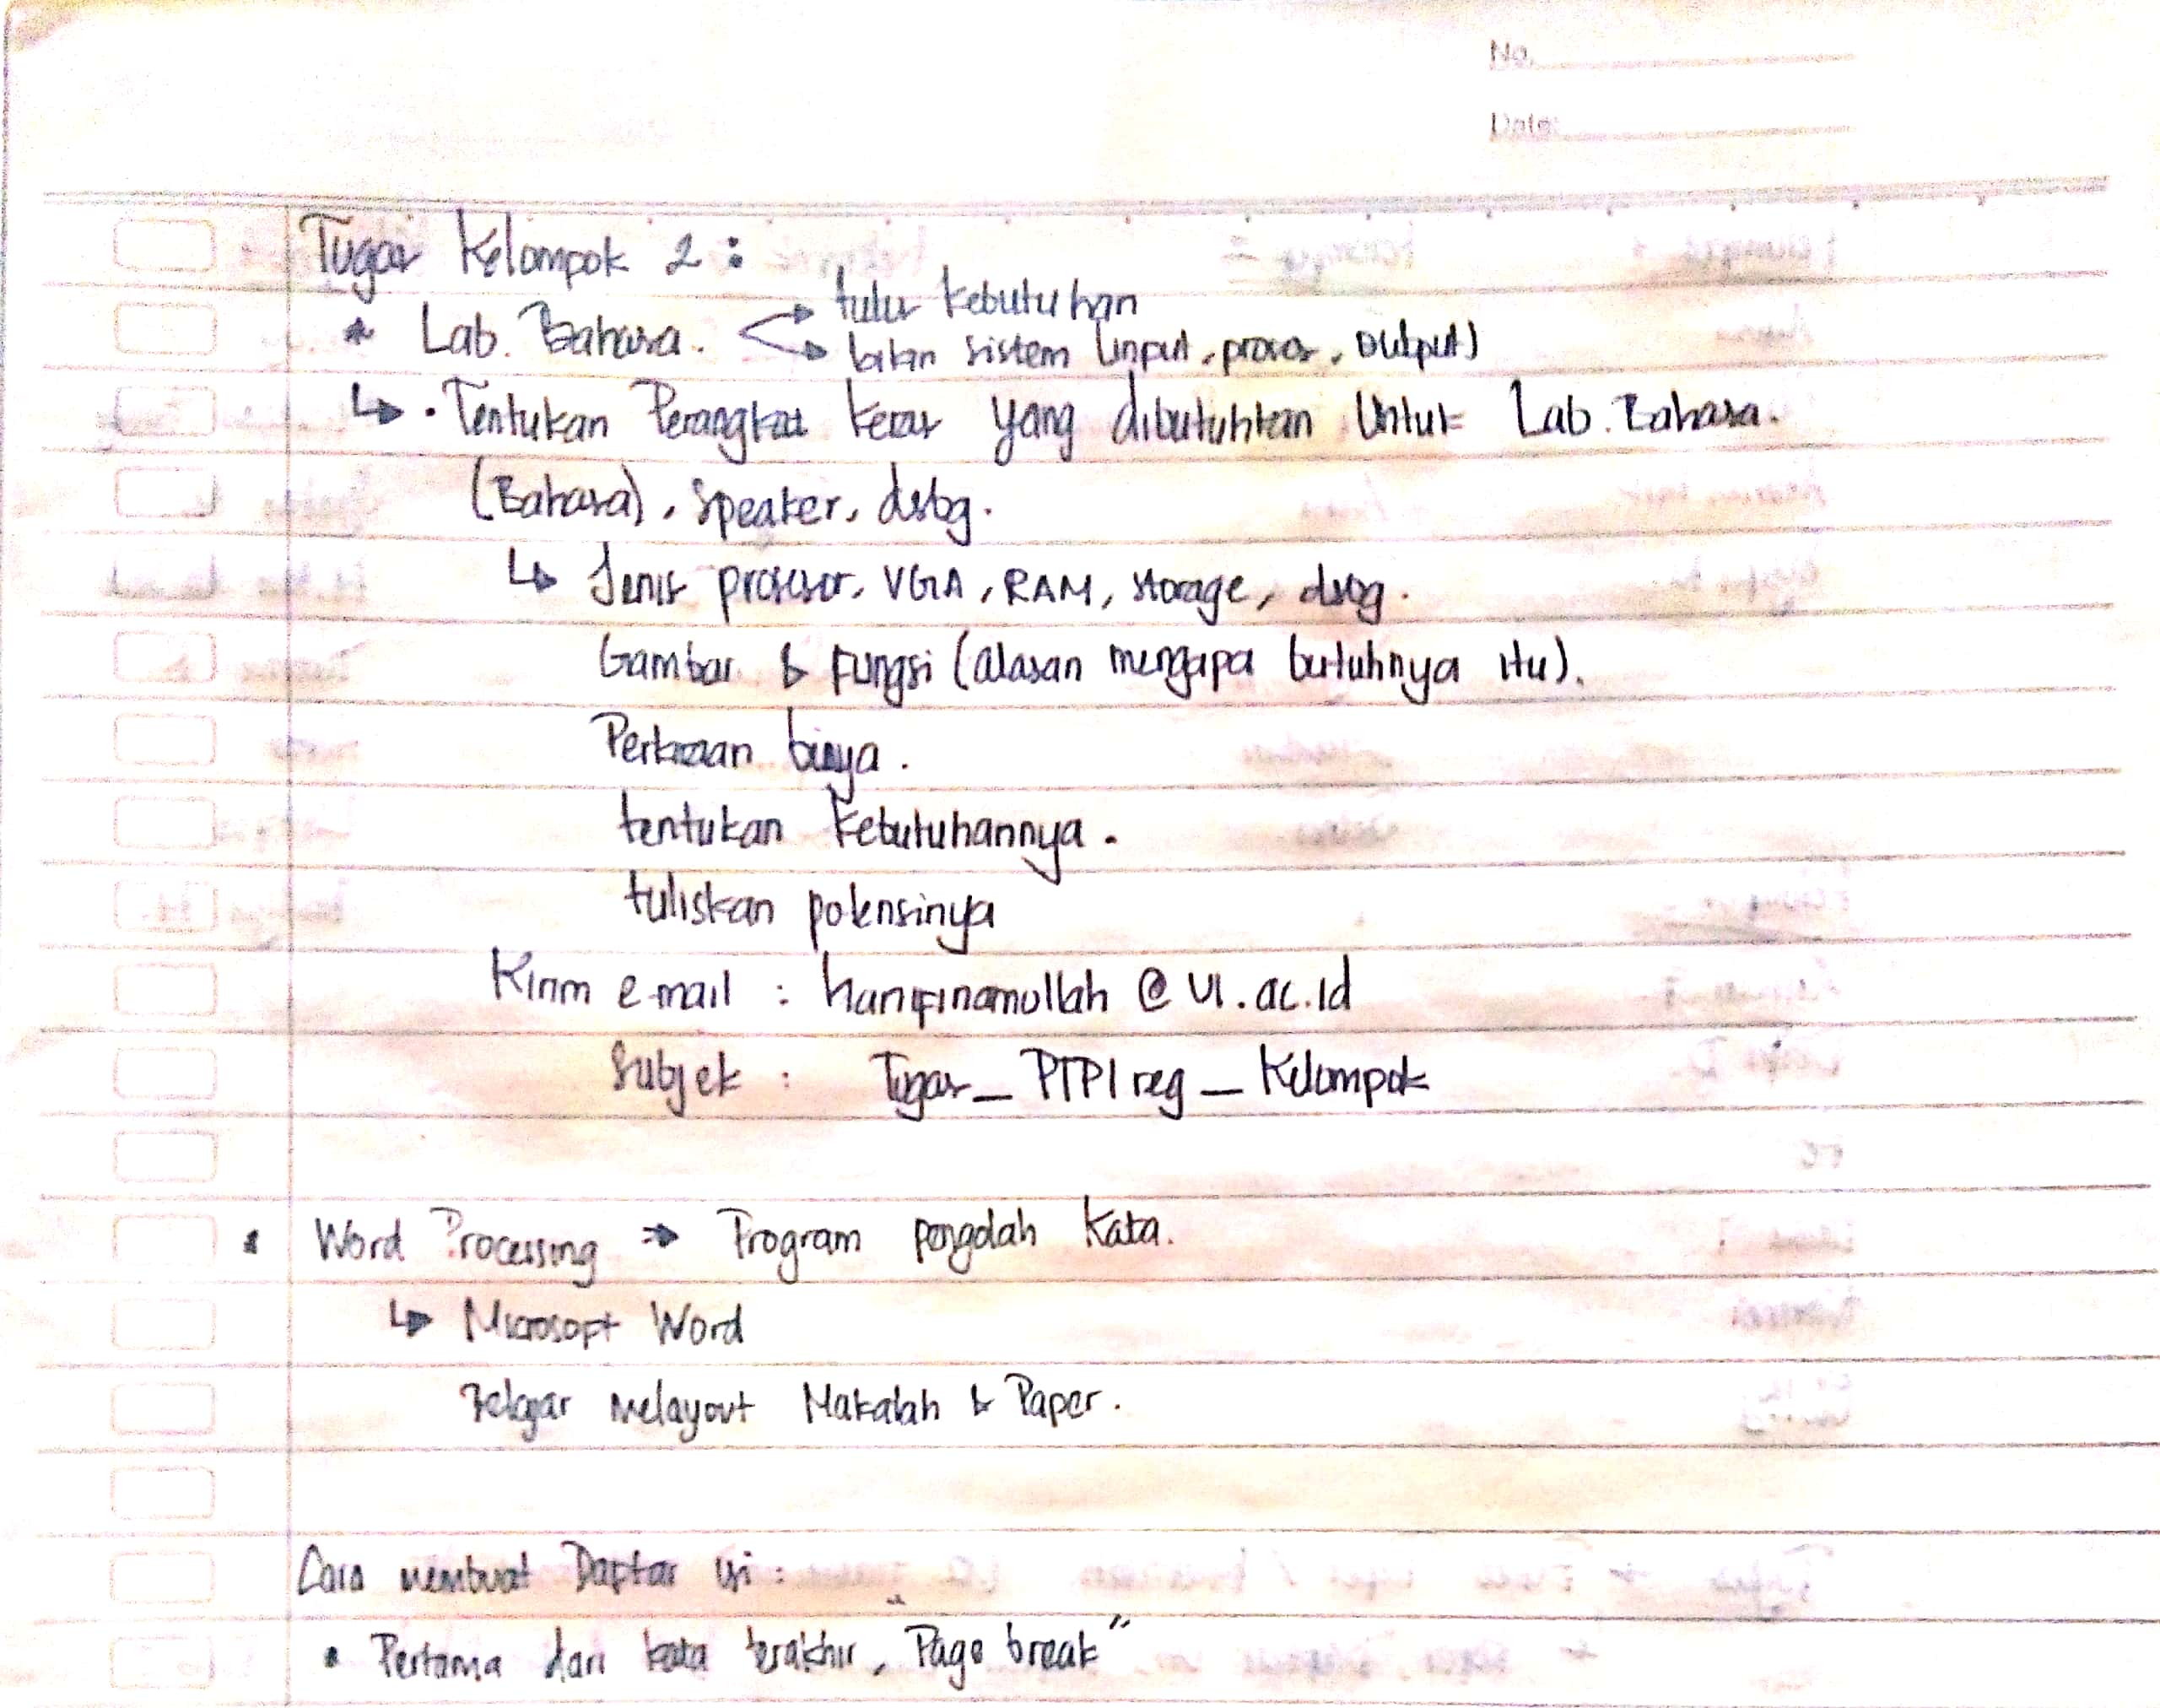 No.
Date:
Tugas Kelompok 2 :
* Lab. Bahasa. → tulis kebutuhan
→ sistem (input, proses, output)
↳ • Tentukan Perangkat keras yang dibutuhkan Untuk Lab. Bahasa.
(Bahasa), Speaker, dsbg.
↳ Jenis prosesor, VGA, RAM, storage, dsbg.
Gambar & Fungsi (alasan mengapa butuhnya itu).
Perkiraan biaya.
tentukan kebutuhannya.
tuliskan potensinya
Kirim e-mail : hanifinamullah @ UI.ac.id
Subjek : Tugas_PTPI reg_Kelompok
• Word Processing ⇒ Program pengolah Kata.
↳ Microsoft Word
Belajar Melayout Makalah & Paper.
Cara membuat Daftar Isi :
• Pertama dari kata terakhir, "Page break"